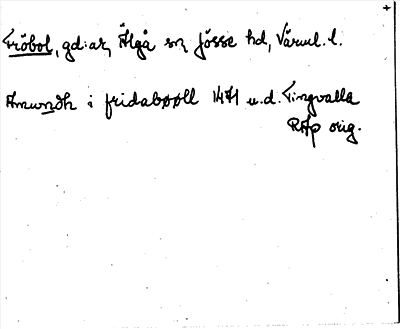 +
Fröbol, gd:ar, Älgå sn, Jösse hd, Värml. l.
Amundh i fridabøøll 1471 u.d. Tingvalla
RAp orig.